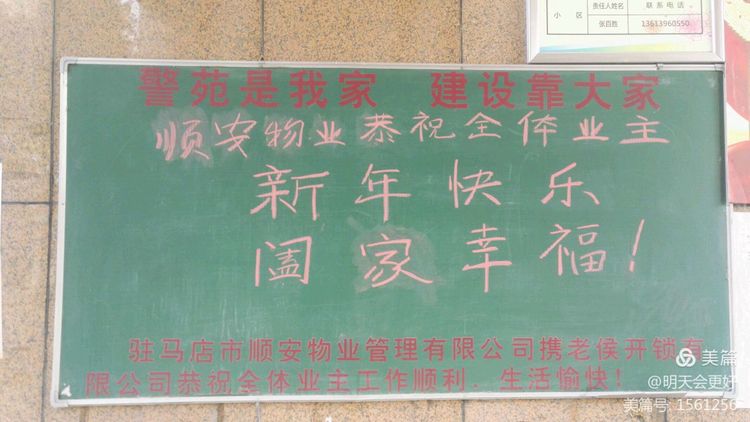 责任人姓名 联系电话
小区 张百胜 13613960550
警苑是我家 建设靠大家
顺安物业恭祝全体业主
新年快乐
阖家幸福！
驻马店市顺安物业管理有限公司携老侯开锁有
限公司恭祝全体业主工作顺利、生活愉快！
美篇
@明天会更好
美篇号：1561256